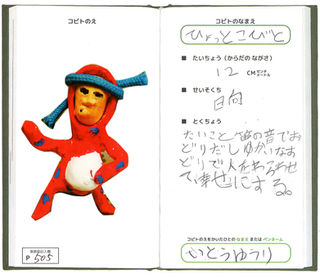 コビトのえ
P 505
コビトのなまえ
ひょっとこびと
■ たいちょう（からだの ながさ）
12 CM
■ せいそくち
日向
■ とくちょう
たいこと笛の音でお
どりだしゆかいなお
どりで人をわらわせ
て幸せにする。
コビトのえをかいたひとの なまえ または ペンネーム
いとうゆうり